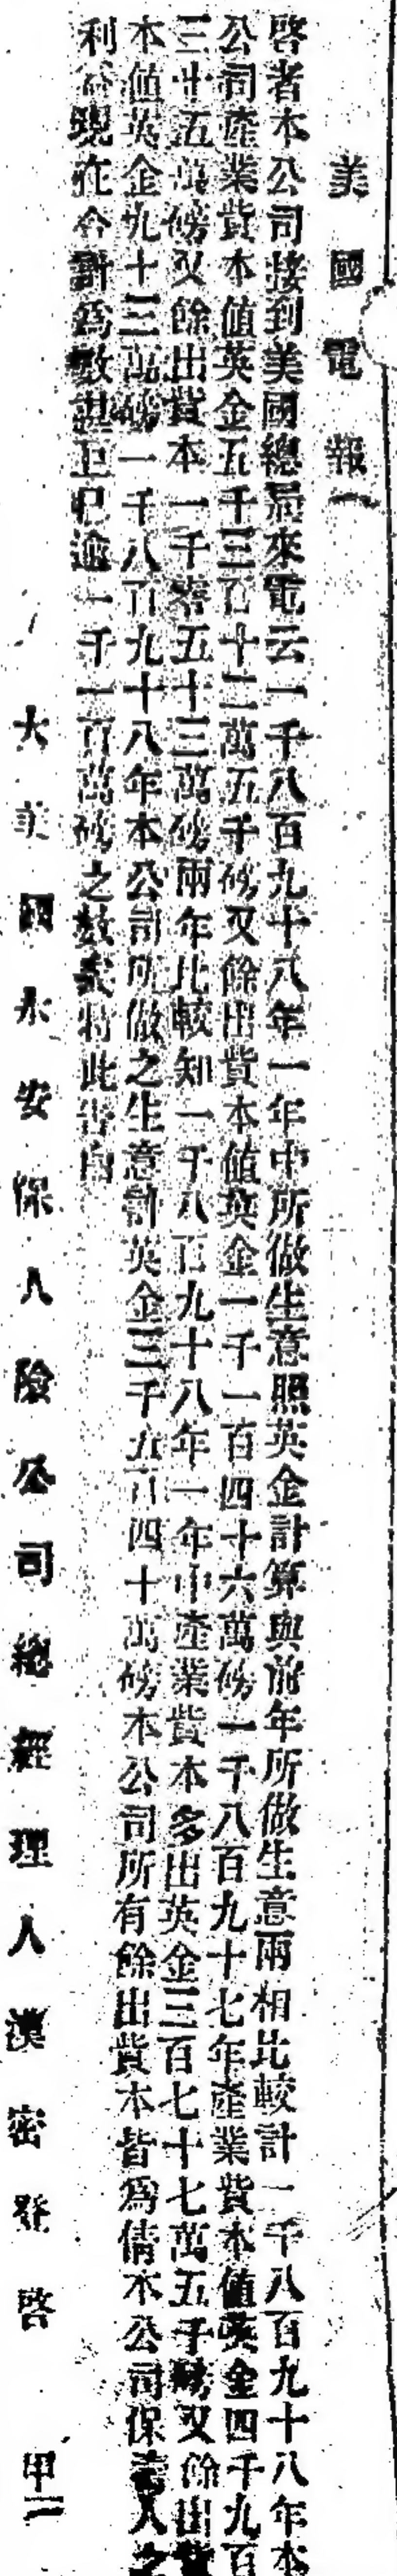 美國電報
啓者本公司接到美國總局來電云一千八百九十八年一年中所做生意照英金計算與前年所做生意兩相比較計一千八百九十八年本
公司產業貲本値英金五千三百十二萬五千磅又餘出貲本値英金一千一百四十六萬磅一千八百九十七年產業貲本値英金四千九百
三十五萬磅又餘出貲本一千零五十三萬磅兩年比較知一千八百九十八年一年中產業貲本多出英金三百七十七萬五千磅又餘出貲
本値英金九十三萬磅一千八百九十八年本公司所做之生意計英金三千五百四十萬磅本公司所有餘出貲本皆爲倩本公司保壽人之
利益現在合計爲數已逾一千一百萬磅之數矣特此告白
大美國永安保人險公司總經理人漢密登啓 甲二